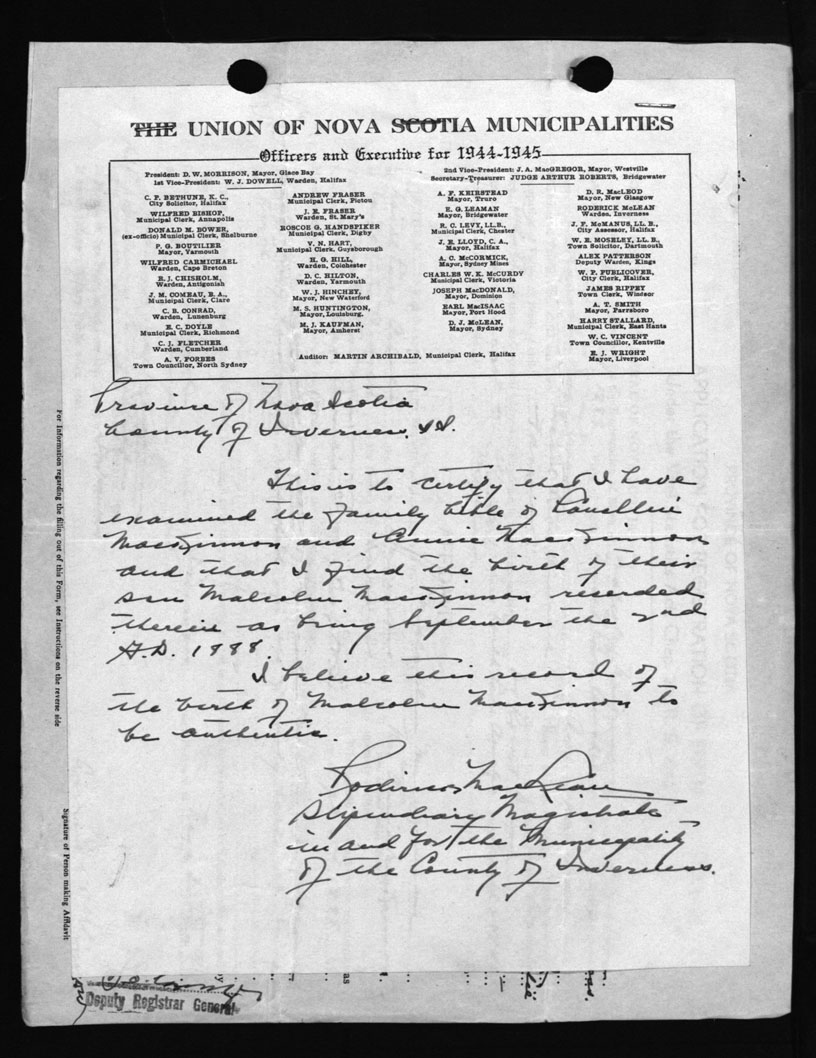 THE UNION OF NOVA SCOTIA MUNICIPALITIES
Officers and Executive for 1944-1945
President: D. W. MORRISON, Mayor, Glace Bay
1st Vice-President: W. J. DOWELL, Warden, Halifax
2nd Vice-President: J. A. MacGREGOR, Mayor, Westville
Secretary-Treasurer: JUDGE ARTHUR ROBERTS, Bridgewater
C. F. BETHUNE, K. C.,
City Solicitor, Halifax
WILFRED BISHOP,
Municipal Clerk, Annapolis
DONALD M. BOWER,
(ex-officio) Municipal Clerk, Shelburne
P. G. BOUTILIER
Mayor, Yarmouth
WILFRED CARMICHAEL
Warden, Cape Breton
R. J. CHISHOLM,
Warden, Antigonish
J. M. COMEAU, B. A.,
Municipal Clerk, Clare
C. B. CONRAD,
Warden, Lunenburg
E. C. DOYLE
Municipal Clerk, Richmond
C. J. FLETCHER
Warden, Cumberland
A. V. FORBES
Town Councillor, North Sydney
ANDREW FRASER
Municipal Clerk, Pictou
J. E. FRASER
Warden, St. Mary's
ROSCOE G. HANDSPIKER
Municipal Clerk, Digby
V. N. HART,
Municipal Clerk, Guysborough
H. G. HILL,
Warden, Colchester
D. C. HILTON,
Warden, Yarmouth
W. J. HINCHEY,
Mayor, New Waterford
M. S. HUNTINGTON,
Mayor, Louisburg.
M. J. KAUFMAN,
Mayor, Amherst
A. F. KEIRSTEAD
Mayor, Truro
E. G. LEAMAN
Mayor, Bridgewater
R. C. LEVY, LL.B.,
Municipal Clerk, Chester
J. E. LLOYD, C. A.,
Mayor, Halifax
A. C. McCORMICK,
Mayor, Sydney Mines
CHARLES W. K. McCURDY
Municipal Clerk, Victoria
JOSEPH MacDONALD,
Mayor, Dominion
EARL MacISAAC
Mayor, Port Hood
D. J. McLEAN,
Mayor, Sydney
D. R. MacLEOD
Mayor, New Glasgow
RODERICK McLEAN
Warden, Inverness
J. F. McMANUS, LL. B.,
City Assessor, Halifax
W. E. MOSELEY, LL. B.,
Town Solicitor, Dartmouth
ALEX PATTERSON
Deputy Warden, Kings
W. P. PUBLICOVER,
City Clerk, Halifax
JAMES RIPPEY
Town Clerk, Windsor
A. T. SMITH
Mayor, Parrsboro
HARRY STALLARD,
Municipal Clerk, East Hants
W. C. VINCENT
Town Councillor, Kentville
E. J. WRIGHT
Mayor, Liverpool
Auditor: MARTIN ARCHIBALD, Municipal Clerk, Halifax
Province of Nova Scotia
County of Inverness. SS.
This is to certify that I have
examined the family bible of
MacKinnon and Annie MacKinnon
and that I find the birth of their
son Malcolm MacKinnon recorded
therein as being September the 2nd
A.D. 1888.
I believe this record of
the birth of Malcolm MacKinnon to
be authentic.
Roderick MacLean
Stipendiary Magistrate
in and for the Municipality
of the County of Inverness.
For Information regarding the filling out of this Form, see Instructions on the reverse side
Signature of Person making Affidavit
Deputy Registrar General